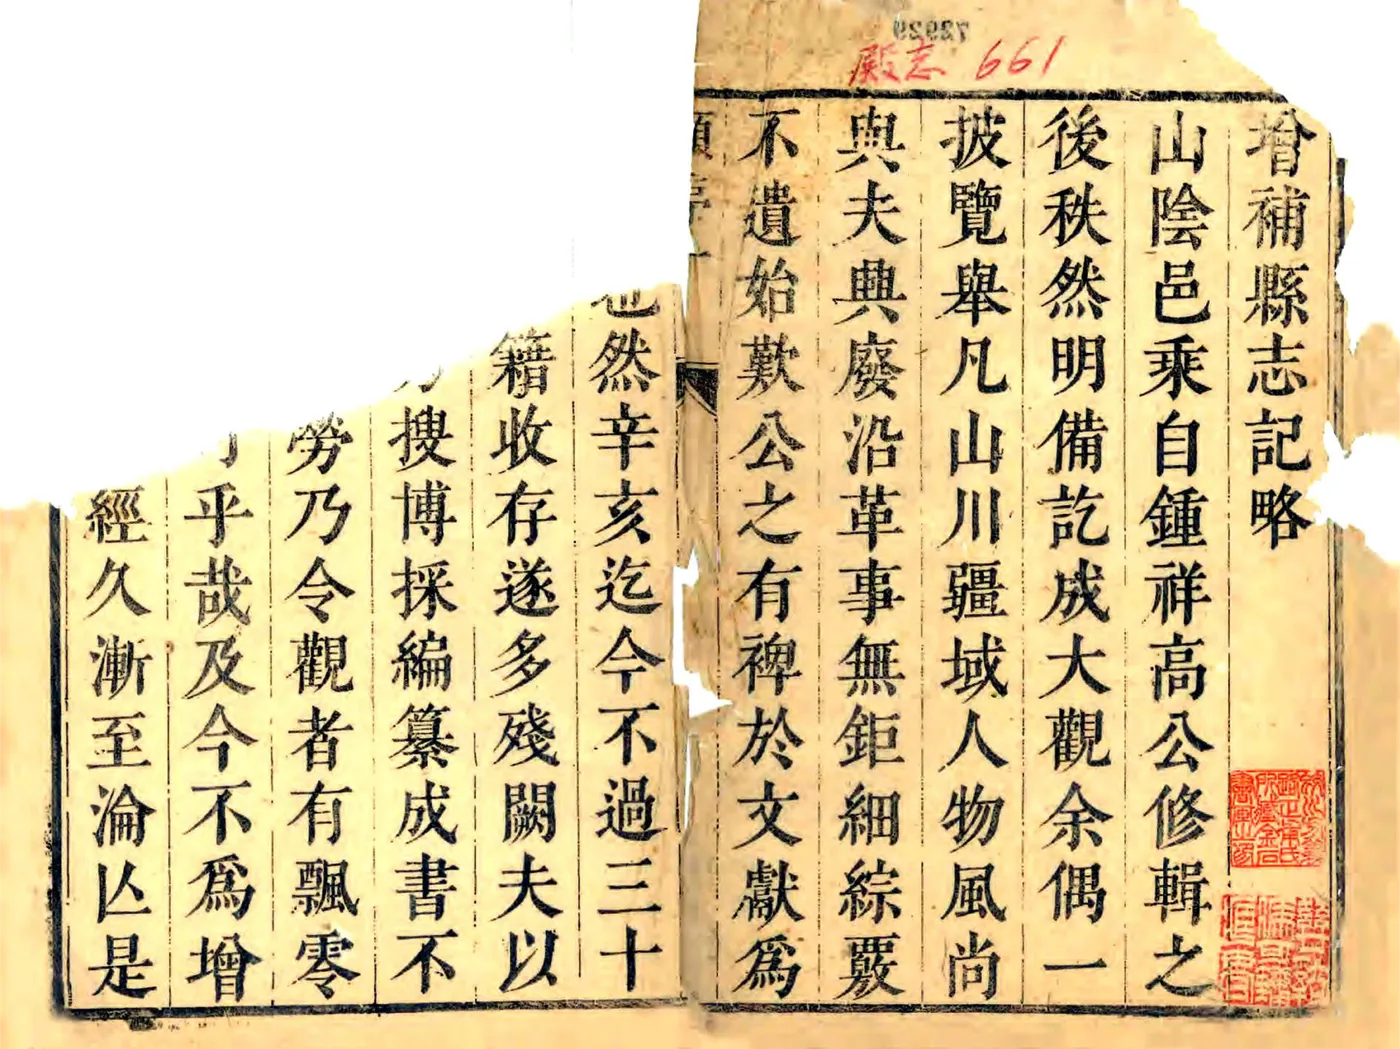 殿志 661
72929
增補縣志記略
山陰邑乘自鍾祥高公修輯之
後秩然明備訖成大觀余偶一
披覽舉凡山川疆域人物風尚
與夫典廢沿革事無鉅細綜覈
不遺始歎公之有裨於文獻為
然辛亥迄今不過三十
籍收存遂多殘闕夫以
搜博採編纂成書不
勞乃令觀者有飄零
乎哉及今不為增
經久漸至淪亾是